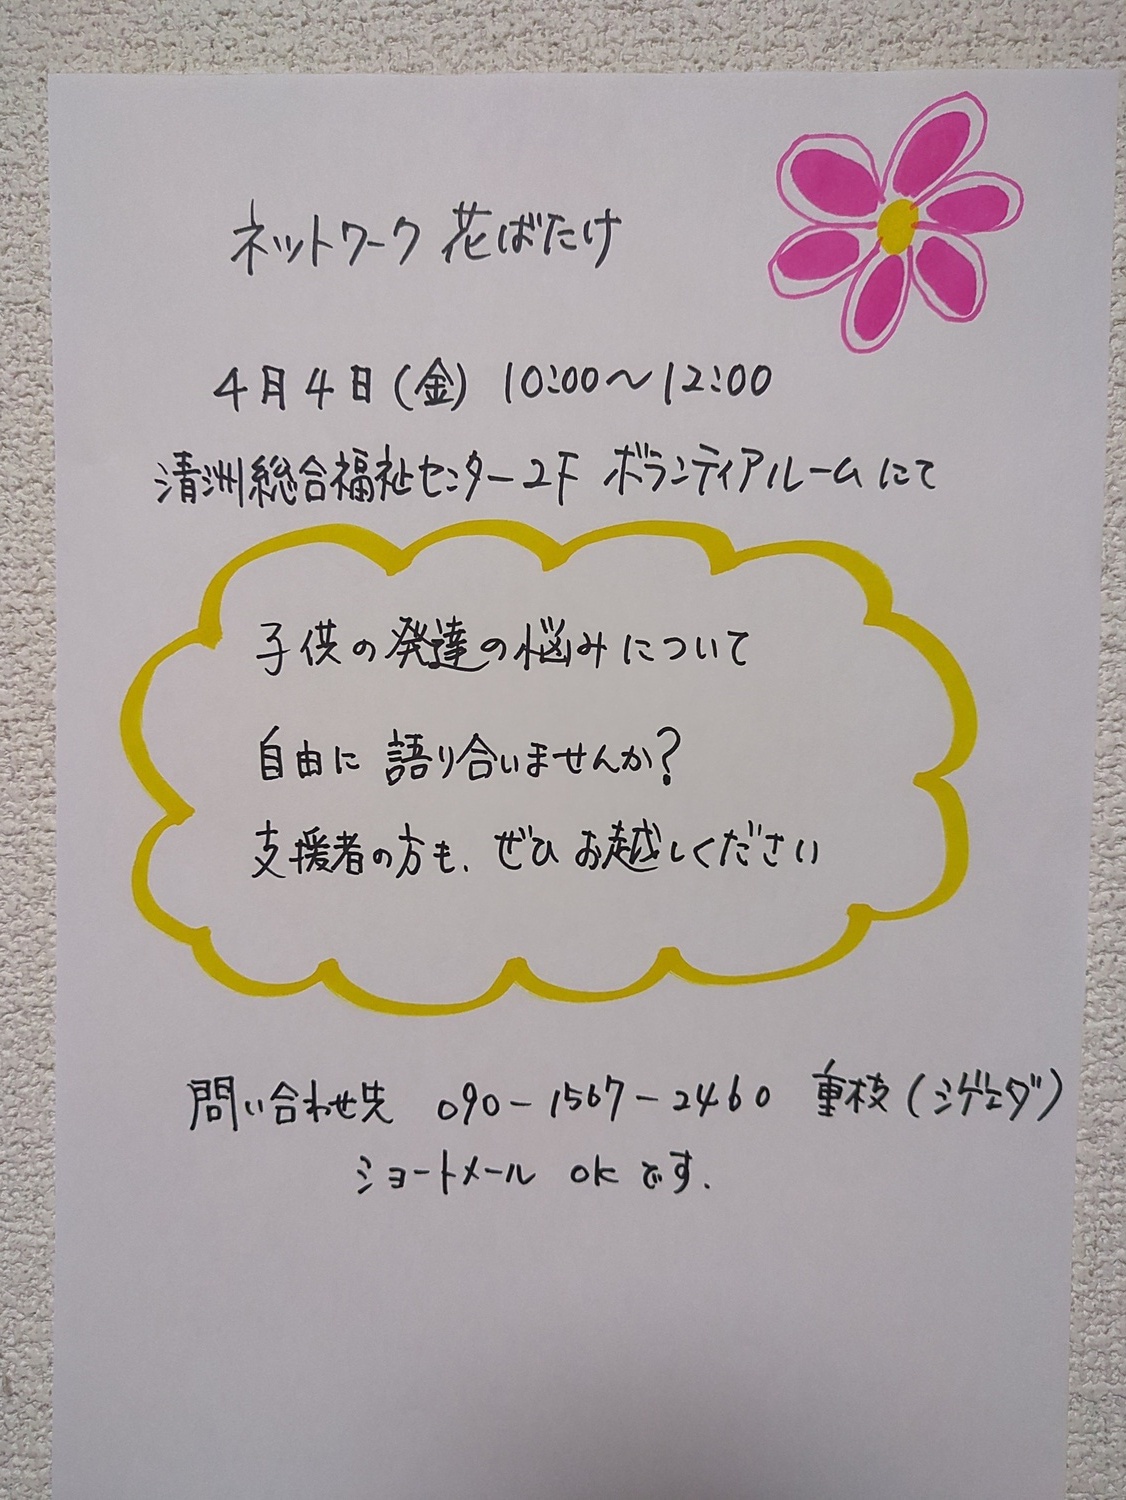 ネットワーク 花ばたけ
4月4日(金) 10:00～12:00
清洲総合福祉センター2F ボランティアルームにて
子供の発達の悩みについて
自由に 語り合いませんか?
支援者の方も、ぜひ お越しください
問い合わせ先 090-1567-2460 重枝(シゲエダ)
ショートメール OKです.